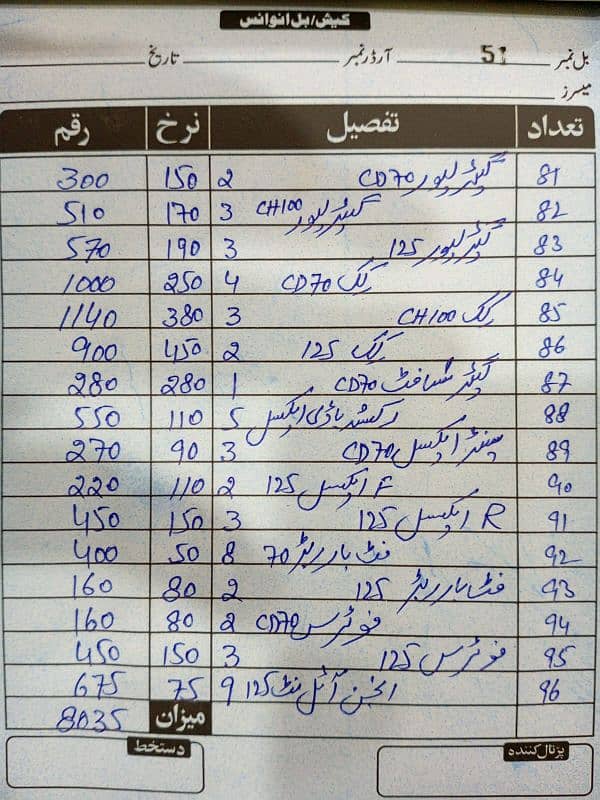 کیش/بل انوائس
بل نمبر 51 آرڈر نمبر تاریخ
میسرز
تعداد تفصیل نرخ رقم
81 گیئر لیور CD70 2 150 300
82 گیئر لیور CH100 3 170 510
83 گیئر لیور 125 3 190 570
84 کک CD70 4 250 1000
85 کک CH100 3 380 1140
86 کک 125 2 450 900
87 گیئر شافٹ CD70 1 280 280
88 رکشہ باڈی ایکسل 5 110 550
89 سینٹر ایکسل CD70 3 90 270
90 F ایکسل 125 2 110 220
91 R ایکسل 125 3 150 450
92 فٹ بار ربڑ 70 8 50 400
93 فٹ بار ربڑ 125 2 80 160
94 CD70 2 80 160
95 125 3 150 450
96 انجن آئل نٹ 125 9 75 675
میزان 8035
پڑتال کننده دستخط